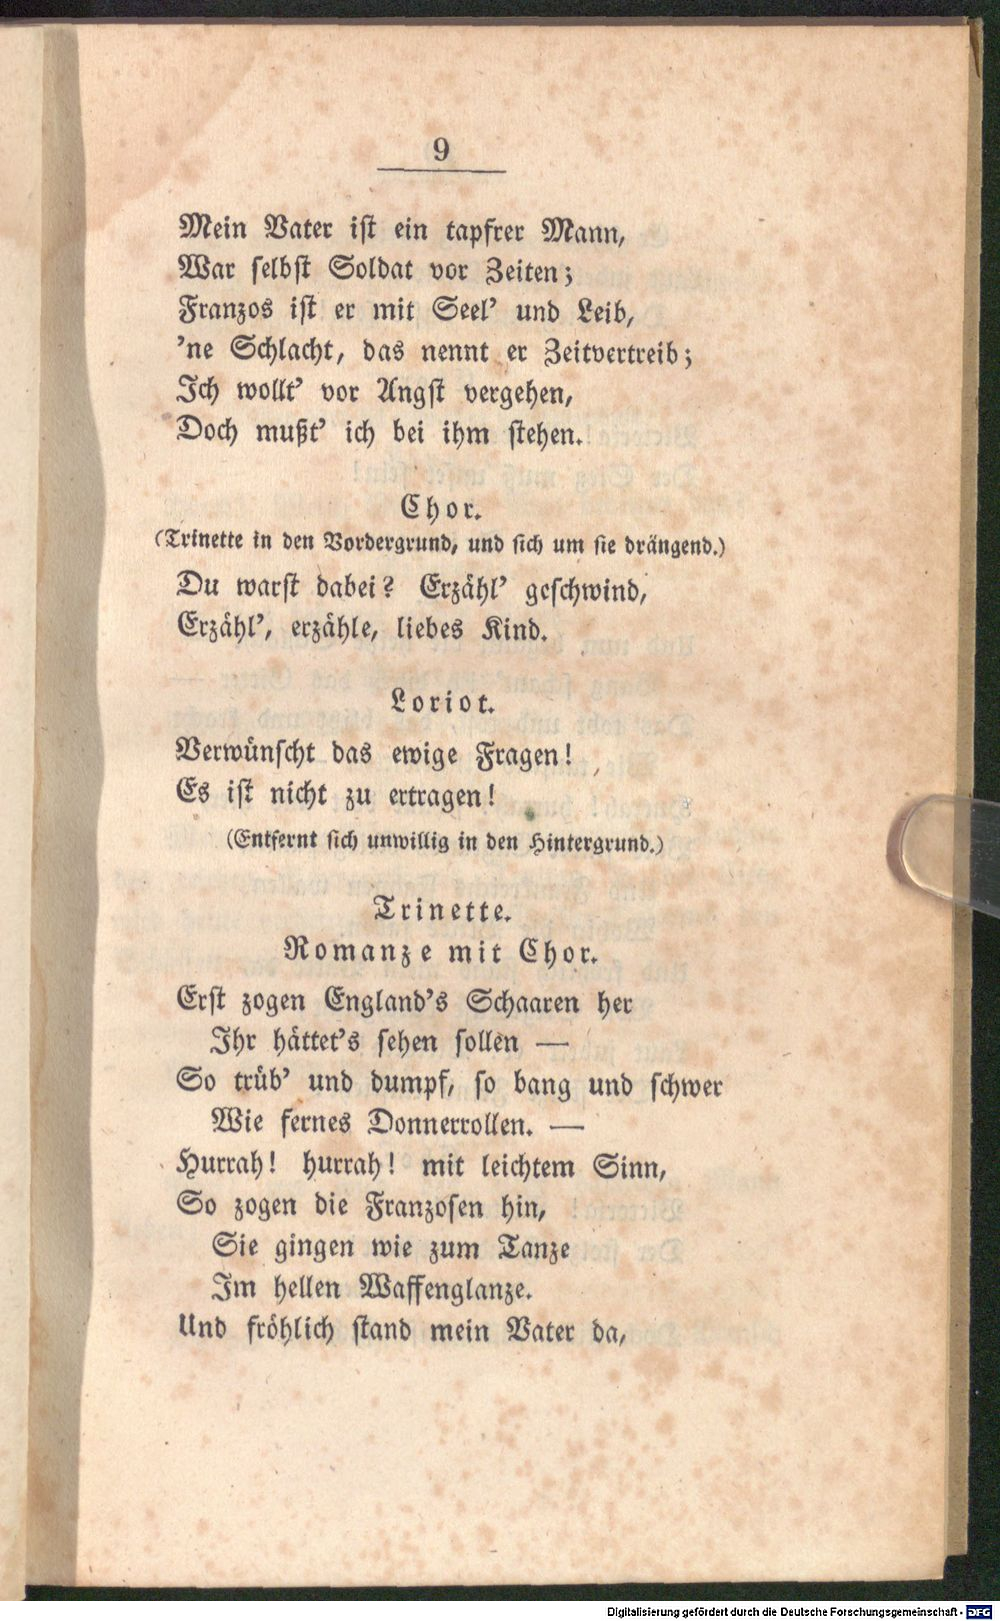 9
Mein Vater ist ein tapfrer Mann,
War selbst Soldat vor Zeiten;
Franzos ist er mit Seel' und Leib,
'ne Schlacht, das nennt er Zeitvertreib;
Ich wollt' vor Angst vergehen,
Doch mußt' ich bei ihm stehen.
Chor.
(Trinette in den Vordergrund, und sich um sie drängend.)
Du warst dabei? Erzähl' geschwind,
Erzähl', erzähle, liebes Kind.
Loriot.
Verwünscht das ewige Fragen!
Es ist nicht zu ertragen!
(Entfernt sich unwillig in den Hintergrund.)
Trinette.
Romanze mit Chor.
Erst zogen England's Schaaren her
Ihr hättet's sehen sollen —
So trüb' und dumpf, so bang und schwer
Wie fernes Donnerrollen. —
Hurrah! hurrah! mit leichtem Sinn,
So zogen die Franzosen hin,
Sie gingen wie zum Tanze
Im hellen Waffenglanze.
Und fröhlich stand mein Vater da,
Digitalisierung gefördert durch die Deutsche Forschungsgemeinschaft - DFG